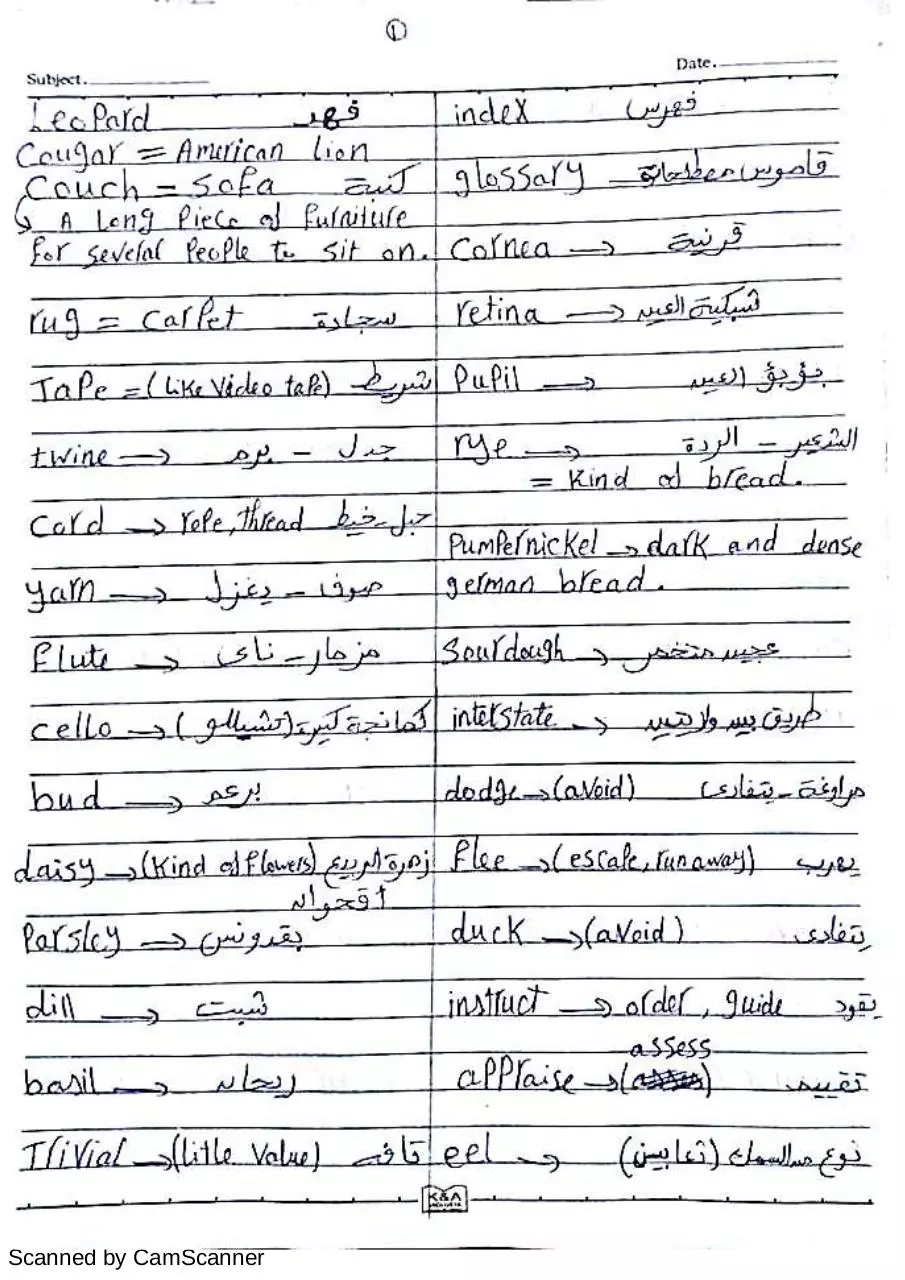 ①
Subject.
Date.
Leopard فهد
Cougar = American lion
Couch = Sofa كنبة
↳ A long Piece of furniture
for several People to sit on.
rug = carpet سجادة
Tape = (like Video tape) شريط
twine → جدل - برم
Cord → rope, thread حبل - خيط
yarn → صوف - يغزل
flute → مزمار - ناى
cello → (كمانجة كبيرة (تشيللو
bud → برعم
daisy → (Kind of flowers) زهرة الربيع
اقحوان
Parsley → بقدونس
dill → شبت
basil → ريحان
Trivial → (little Value) تافه
index فهرس
glossary قاموس مصطلحات
Cornea → قرنية
retina → شبكية العين
Pupil → بؤبؤ العين
rye → الشعير - الردة
= Kind of bread.
Pumpernickel → dark and dense
german bread.
Sourdough → عجين متخمر
interstate → طريق بين ولايتين
dodge → (avoid) مراوغة - يتفادى
flee → (escape, run away) يهرب
duck → (avoid) يتفادى
instruct → order, guide يقود
assess
appraise → ( ) تقييم
eel → نوع من السمك (ثعابين)
K&A
Scanned by CamScanner